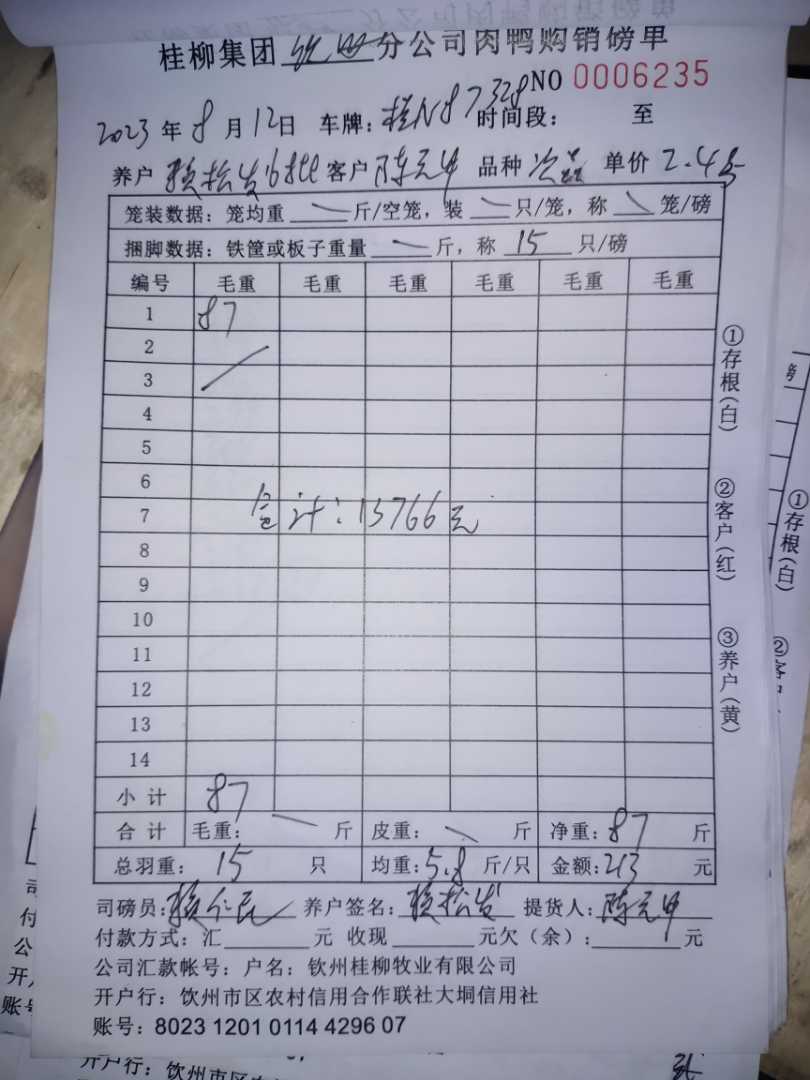 桂柳集团 钦州 分公司肉鸭购销磅单
NO 0006235
2023 年 8 月 12日 车牌：桂N87328 时间段： 至
养户 赖松发16批 客户 陈元甲 品种 次品 单价 2.45
笼装数据：笼均重 斤/空笼，装 只/笼，称 笼/磅
捆脚数据：铁筐或板子重量 斤，称 15 只/磅
编号 毛重 毛重 毛重 毛重 毛重 毛重
1 87
2
3
4
5
6
7
合计：13766元
8
9
10
11
12
13
14
小 计 87
合 计 毛重： 斤 皮重： 斤 净重：87 斤
总羽重： 15 只 均重：5.8 斤/只 金额：213 元
司磅员：赖仁民 养户签名：赖松发 提货人：陈元甲
付款方式：汇 元 收现 元欠（余）： 元
公司汇款帐号：户名：钦州桂柳牧业有限公司
开户行：钦州市区农村信用合作联社大垌信用社
账号：8023 1201 0114 4296 07
①存根（白）
②客户（红）
③养户（黄）
①存根（白）
②
司
付
公
开
账号
开户行：钦州市区